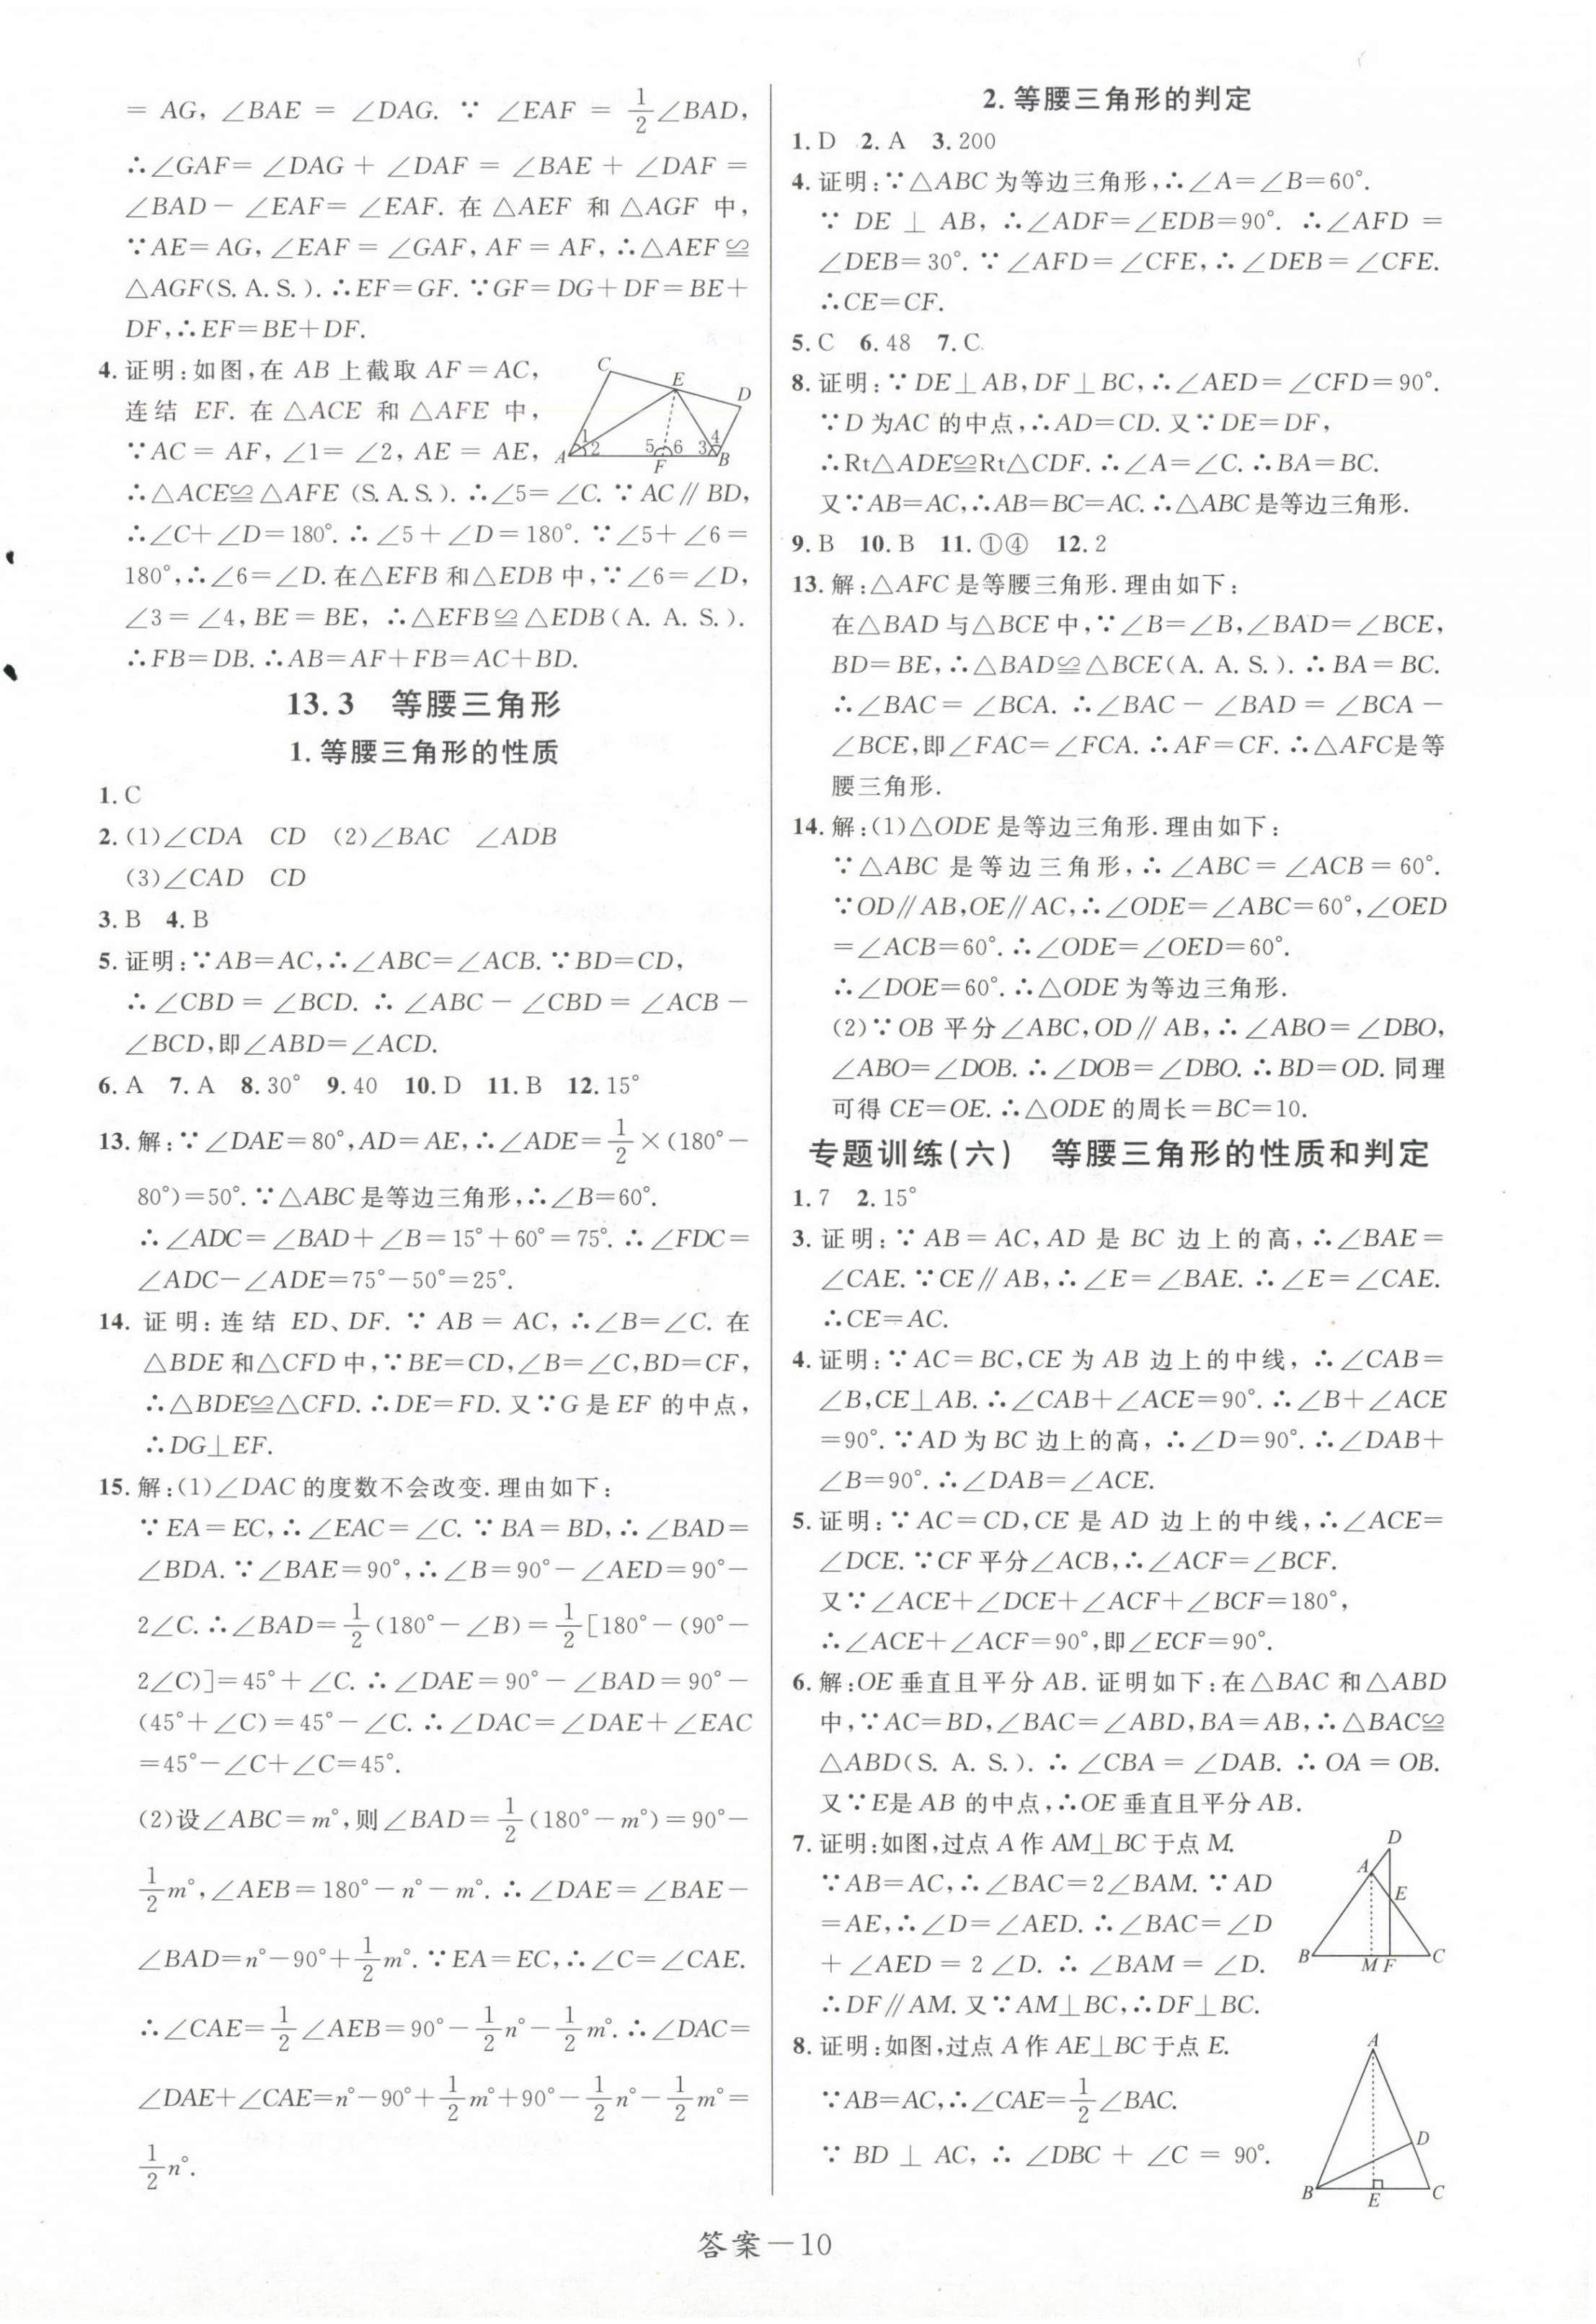 = AG, ∠BAE = ∠DAG. ∵ ∠EAF = 1/2∠BAD,
∴∠GAF= ∠DAG + ∠DAF = ∠BAE + ∠DAF =
∠BAD- ∠EAF= ∠EAF. 在 △AEF 和 △AGF 中,
∵AE=AG,∠EAF=∠GAF,AF=AF,∴△AEF≌
△AGF(S.A.S.).∴EF=GF.∵GF=DG+DF=BE+
DF,∴EF=BE+DF.
4.证明:如图,在 AB 上截取 AF=AC,
连结 EF. 在 △ACE 和 △AFE 中,
∵AC = AF, ∠1= ∠2, AE = AE,
C
E
D
A
1
2
5
6
3
4
F
B
∴△ACE≌△AFE (S.A.S.).∴∠5=∠C.∵AC∥BD,
∴∠C+∠D=180°.∴∠5+∠D=180°.∵∠5+∠6=
180°,∴∠6=∠D.在△EFB和△EDB中,∵∠6=∠D,
∠3=∠4,BE=BE, ∴△EFB≌△EDB(A. A. S.).
∴FB=DB.∴AB=AF+FB=AC+BD.
13.3 等腰三角形
1.等腰三角形的性质
1.C
2.(1)∠CDA CD (2)∠BAC ∠ADB
(3)∠CAD CD
3.B 4.B
5.证明:∵AB=AC,∴∠ABC=∠ACB.∵BD=CD,
∴∠CBD=∠BCD.∴∠ABC-∠CBD=∠ACB-
∠BCD,即∠ABD=∠ACD.
6.A 7.A 8.30° 9.40 10.D 11.B 12.15°
13.解:∵∠DAE=80°,AD=AE,∴∠ADE=1/2×(180°-
80°)=50°.∵△ABC是等边三角形,∴∠B=60°.
∴∠ADC=∠BAD+∠B=15°+60°=75°.∴∠FDC=
∠ADC-∠ADE=75°-50°=25°.
14.证明:连结 ED、DF.∵AB=AC,∴∠B=∠C.在
△BDE和△CFD中,∵BE=CD,∠B=∠C,BD=CF,
∴△BDE≌△CFD.∴DE=FD.又∵G是EF的中点,
∴DG⊥EF.
15.解:(1)∠DAC的度数不会改变.理由如下:
∵EA=EC,∴∠EAC=∠C.∵BA=BD,∴∠BAD=
∠BDA.∵∠BAE=90°,∴∠B=90°-∠AED=90°-
2∠C.∴∠BAD=1/2(180°-∠B)=1/2[180°-(90°-
2∠C)]=45°+∠C.∴∠DAE=90°-∠BAD=90°-
(45°+∠C)=45°-∠C.∴∠DAC=∠DAE+∠EAC
=45°-∠C+∠C=45°.
(2)设∠ABC=m°,则∠BAD=1/2(180°-m°)=90°-
1/2m°,∠AEB=180°-n°-m°.∴∠DAE=∠BAE-
∠BAD=n°-90°+1/2m°.∵EA=EC,∴∠C=∠CAE.
∴∠CAE=1/2∠AEB=90°-1/2n°-1/2m°.∴∠DAC=
∠DAE+∠CAE=n°-90°+1/2m°+90°-1/2n°-1/2m°=
1/2n°.
2.等腰三角形的判定
1.D 2.A 3.200
4.证明:∵△ABC为等边三角形,∴∠A=∠B=60°.
∵DE⊥AB,∴∠ADF=∠EDB=90°.∴∠AFD=
∠DEB=30°.∵∠AFD=∠CFE,∴∠DEB=∠CFE.
∴CE=CF.
5.C 6.48 7.C
8.证明:∵DE⊥AB,DF⊥BC,∴∠AED=∠CFD=90°.
∵D为AC的中点,∴AD=CD.又∵DE=DF,
∴Rt△ADE≌Rt△CDF.∴∠A=∠C.∴BA=BC.
又∵AB=AC,∴AB=BC=AC.∴△ABC是等边三角形.
9.B 10.B 11.①④ 12.2
13.解:△AFC是等腰三角形.理由如下:
在△BAD与△BCE中,∵∠B=∠B,∠BAD=∠BCE,
BD=BE,∴△BAD≌△BCE(A. A. S.).∴BA=BC.
∴∠BAC=∠BCA.∴∠BAC-∠BAD=∠BCA-
∠BCE,即∠FAC=∠FCA.∴AF=CF.∴△AFC是等
腰三角形.
14.解:(1)△ODE是等边三角形.理由如下:
∵△ABC是等边三角形,∴∠ABC=∠ACB=60°.
∵OD∥AB,OE∥AC,∴∠ODE=∠ABC=60°,∠OED
=∠ACB=60°.∴∠ODE=∠OED=60°.
∴∠DOE=60°.∴△ODE为等边三角形.
(2)∵OB平分∠ABC,OD∥AB,∴∠ABO=∠DBO,
∠ABO=∠DOB.∴∠DOB=∠DBO.∴BD=OD.同理
可得CE=OE.∴△ODE的周长=BC=10.
专题训练(六) 等腰三角形的性质和判定
1.7 2.15°
3.证明:∵AB=AC,AD是BC边上的高,∴∠BAE=
∠CAE.∵CE∥AB,∴∠E=∠BAE.∴∠E=∠CAE.
∴CE=AC.
4.证明:∵AC=BC,CE为AB边上的中线,∴∠CAB=
∠B,CE⊥AB.∴∠CAB+∠ACE=90°.∴∠B+∠ACE
=90°.∵AD为BC边上的高,∴∠D=90°.∴∠DAB+
∠B=90°.∴∠DAB=∠ACE.
5.证明:∵AC=CD,CE是AD边上的中线,∴∠ACE=
∠DCE.∵CF平分∠ACB,∴∠ACF=∠BCF.
又∵∠ACE+∠DCE+∠ACF+∠BCF=180°,
∴∠ACE+∠ACF=90°,即∠ECF=90°.
6.解:OE垂直且平分AB.证明如下:在△BAC和△ABD
中,∵AC=BD,∠BAC=∠ABD,BA=AB,∴△BAC≌
△ABD(S. A. S.).∴∠CBA=∠DAB.∴OA=OB.
又∵E是AB的中点,∴OE垂直且平分AB.
7.证明:如图,过点A作AM⊥BC于点M.
∵AB=AC,∴∠BAC=2∠BAM.∵AD
=AE,∴∠D=∠AED.∴∠BAC=∠D
+∠AED=2∠D.∴∠BAM=∠D.
∴DF∥AM.又∵AM⊥BC,∴DF⊥BC.
D
A
E
B
M F
C
8.证明:如图,过点A作AE⊥BC于点E.
∵AB=AC,∴∠CAE=1/2∠BAC.
∵BD⊥AC,∴∠DBC+∠C=90°.
A
D
B
E
C
答案-10